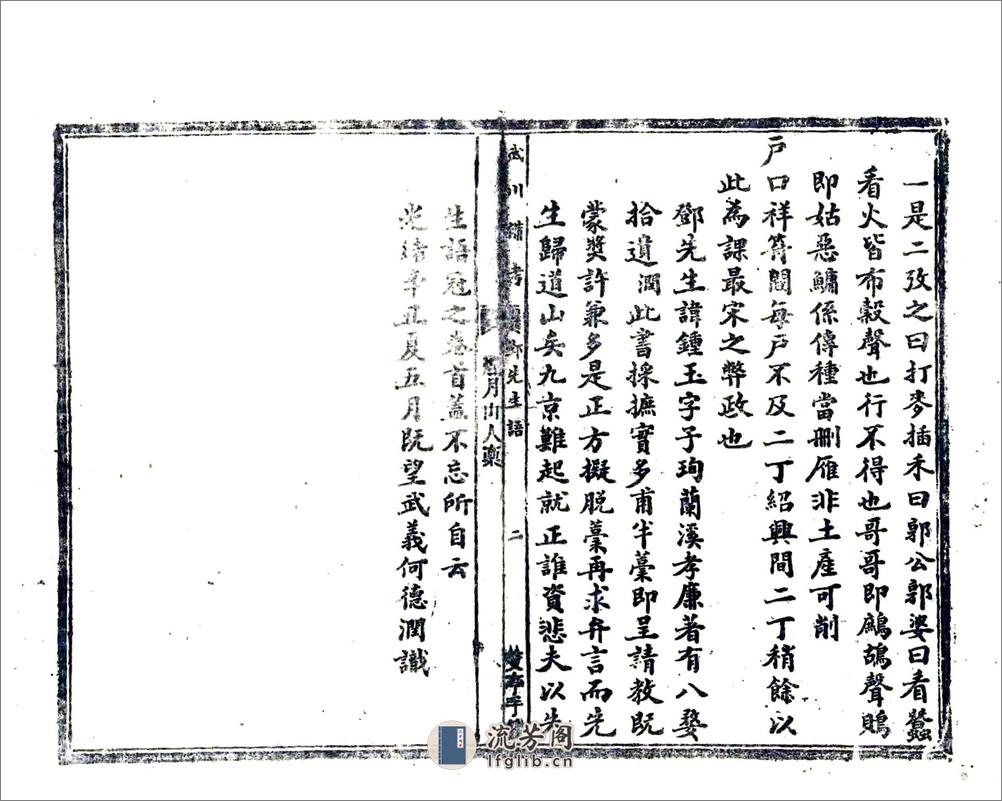 一是二攷之曰打麥插禾曰郭公郭婆曰看蠶
看火皆布穀聲也行不得也哥哥即鷓鴣聲鵙
即姑惡鱅係傳種當刪雁非土產可削
戶口祥符間每戶不及二丁紹興間二丁稍餘以
此為課最宋之弊政也
鄧先生諱鍾玉字子珣蘭溪孝廉著有八婺
拾遺潤此書採摭實多甫半藁即呈請教既
蒙獎許兼多是正方擬脫藁再求弁言而先
生歸道山矣九京難起就正誰資悲夫以先
武川備考
鄧先生語
二
月山人藁
生語冠之卷首蓋不忘所自云
光緒辛丑夏五月既望武義何德潤識
流芳閣
lfglib.cn